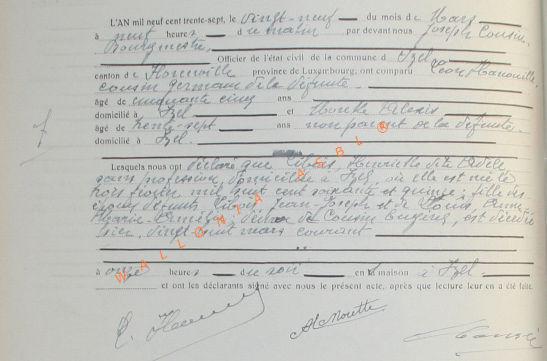 L'AN mil neuf cent trente-sept, le vingt-neuf du mois de Mars
à neuf heures du matin par devant nous Joseph Cousin
Bourgmestre,
Officier de l'état civil de la commune d' Izel
canton de Florenville province de Luxembourg, ont comparu Léon
cousin germain de la défunte
âgé de cinquante cinq ans
domicilié à Izel et Alexis
âgé de trente-sept ans non parent de la défunte.
domicilié à Izel.
Lesquels nous ont déclaré que Henriette dite Adèle
sans profession, domiciliée à Izel, où elle est née le
trois février mil huit cent soixante et quinze; fille des
époux défunts Jean-Joseph et de Anne-
Marie- de Cousin Eugène, est décédée
hier, vingt-huit mars courant
à onze heures du soir en la maison à Izel
et ont les déclarants signé avec nous le présent acte, après que lecture leur en a été faite.
WALLONIA ASBL ®